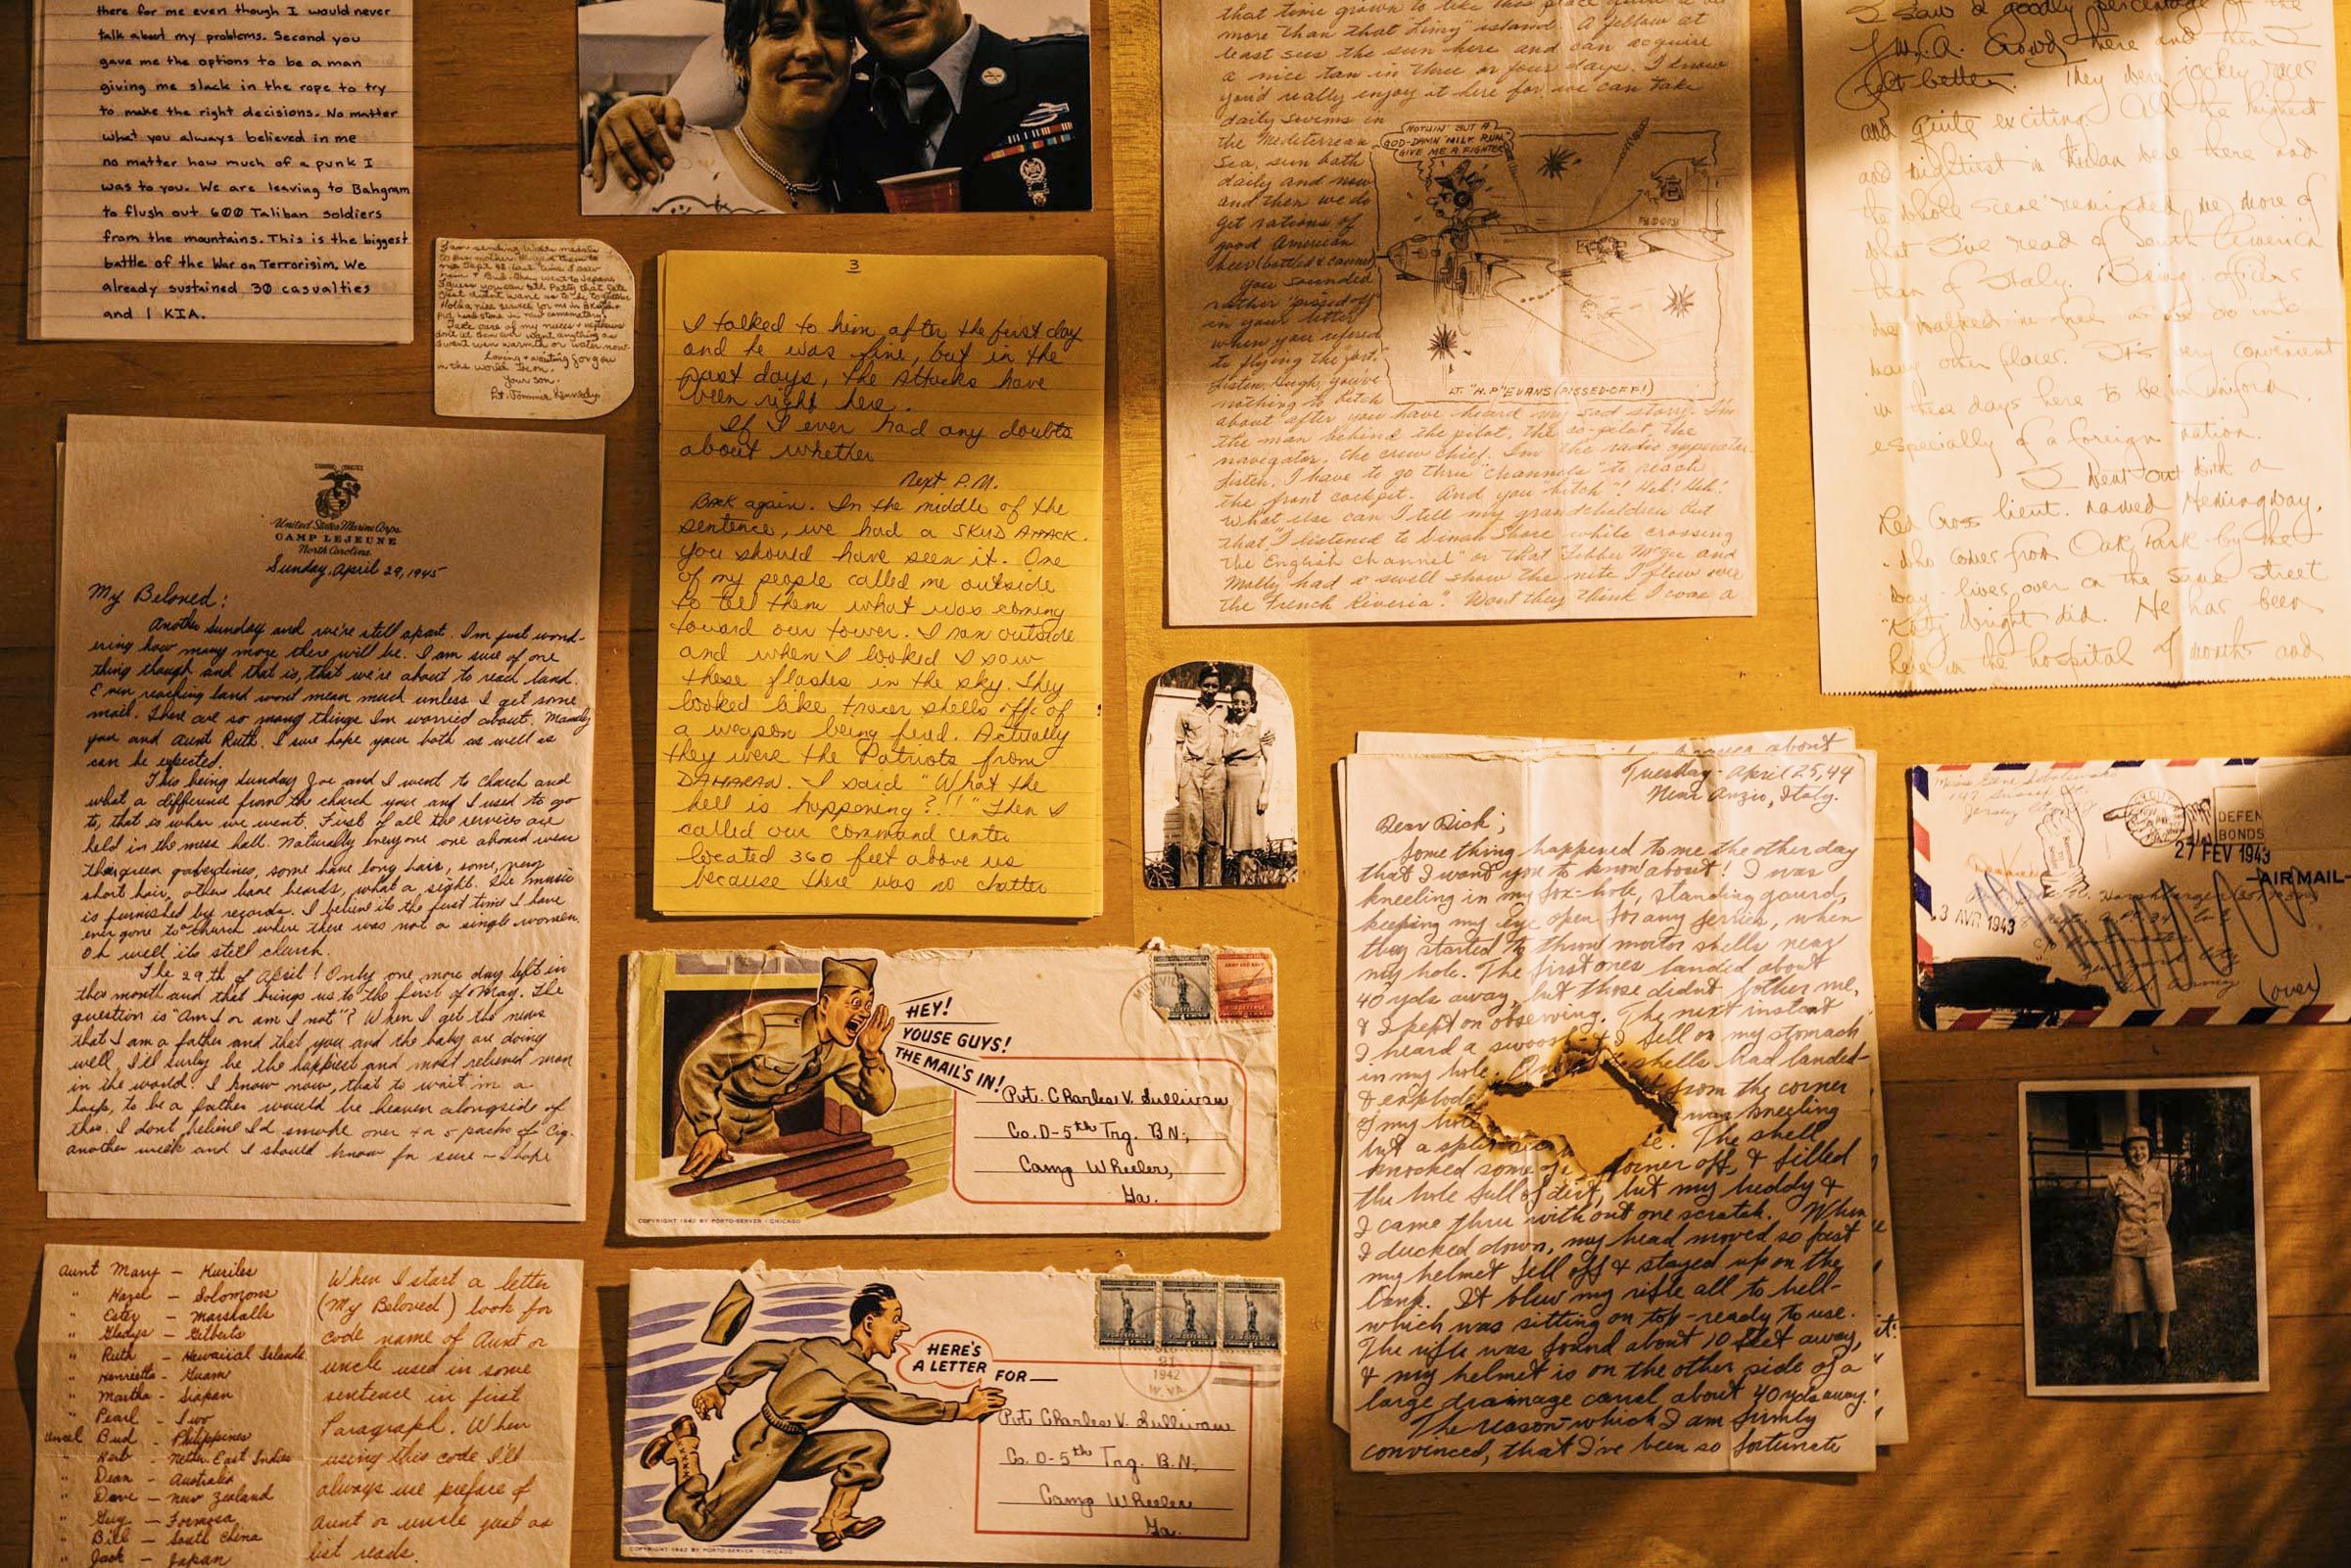 there for me even though I would never
talk about my problems. Second you
gave me the options to be a man
giving me slack in the rope to try
to make the right decisions. No matter
what you always believed in me
no matter how much of a punk I
was to you. We are leaving to Bahgram
to flush out 600 Taliban soldiers
from the mountains. This is the biggest
battle of the War on Terrorisim. We
already sustained 30 casualties
and 1 KIA.
Take care of my nieces + nephews
Loving + waiting for you
in the world to come.
Your son,
Lt. Tommie Kennedy
3
I talked to him after the first day
and he was fine, but in the
past days, the attacks have
been right here.
If I ever had any doubts
about whether
Next P.M.
Back again. In the middle of the
sentence, we had a SKUD ATTACK.
You should have seen it. One
of my people called me outside
to tell them what was coming
toward our tower. I ran outside
and when I looked I saw
these flashes in the sky. They
looked like tracer shells off of
a weapon being fired. Actually
they were the Patriots from
DAHARAN. I said "What the
hell is happening?!!" Then I
called our command center
located 360 feet above us
because there was no chatter
that time grown to like this place quite a bit
more than that "Limy" island. A fellow at
least sees the sun here and can acquire
a nice tan in three or four days. I know
you'd really enjoy it here for we can take
daily swims in
the Mediterrean
Sea, sun bath
daily and now
and then we do
get rations of
good American
beer (bottled & canned)
You sounded
rather "pissed off"
in your letter
when you refered
to flying the
Listen, Hugh, you've
nothing to bitch
about after you have heard my sad story. I'm
the man behind the pilot, the co-pilot, the
navigator, the crew chief. I'm the radio operator.
Listen, I have to go thru "channels" to reach
the front cockpit. And you "bitch"! Heh! Heh!
What else can I tell my grandchildren but
that I listened to Dinah Shore while crossing
the English Channel" or that "Fibber McGee and
Molly had a swell show the nite I flew over
the French Riveria". Wont they think I was a
NOTHIN' BUT A
GOD-DAMN MILK RUN
GIVE ME A FIGHTER
LT. "H.P" EVANS (PISSED-OFF!)
I saw a goodly percentage of the
Crowd here and hence
felt better. They were jockey races
and quite exciting. All the highest
and mightiest in Milan were there and
the whole scene reminded me more of
what I've read of South America
than of Italy. Being officers
we walked in free as we do into
many other places. It's very convenient
in these days here to be in uniform,
especially of a foreign nation.
I went out with a
Red Cross lieut. named Hemingway,
who comes from Oak Park by the
way - lives over on the same street
"Katy" Wright did. He has been
here in the hospital 4 months and
United States Marine Corps
CAMP LEJEUNE
North Carolina
Sunday, April 29, 1945
My Beloved:
Another Sunday and we're still apart. I'm just wond-
ering how many more there will be. I am sure of one
thing though and that is, that we're about to reach land.
Even reaching land wont mean much unless I get some
mail. There are so many things I'm worried about. Mainly
you and Aunt Ruth. I sure hope your both as well as
can be expected.
This being Sunday Joe and I went to church and
what a difference from the church you and I used to go
to, that is when we went. First of all the services are
held in the mess hall. Naturally everyone one aboard wear
their green gaberdines, some have long hair, some, very
short hair, others have beards, what a sight. The music
is furnished by records. I believe its the first time I have
ever gone to church where there was not a single women.
Oh well its still church.
The 29th of April! Only one more day left in
this month and that brings us to the first of May. The
question is "Am I or am I not"? When I get the news
that I am a father and that you and the baby are doing
well, I'll surly be the happiest and most relieved man
in the world. I know now, that to wait in a
hosp, to be a father would be heaven alongside of
this. I dont believe I'd smoke over 4 or 5 packs of Cig.
another week and I should know for sure - I hope
HEY!
YOUSE GUYS!
THE MAIL'S IN!
Pvt. Charles V. Sullivan
Co. D-5th Trg. BN;
Camp Wheeler,
Ga.
COPYRIGHT 1942 BY PORTO-SERVER - CHICAGO
HERE'S
A LETTER
FOR—
21
1942
W. VA.
Pvt. Charles V. Sullivan
Co. D-5th Trg. B.N.
Camp Wheeler
Ga.
COPYRIGHT 1942 BY PORTO-SERVER - CHICAGO
Aunt Mary — Kuriles
" Hazel — Solomons
" Ester — Marshalls
" Gladys — Gilberts
" Ruth — Hawaiial Islands
" Henrietta — Guam
" Martha — Siapan
" Pearl — Iwo
Uncel Bud — Philippines
" Herb — Nether East Indies
" Dean — Australia
" Dave — New Zealand
" Guy — Formosa
" Bill — South China
" Jack — Japan
When I start a letter
(My Beloved) look for
code name of Aunt or
uncle used in some
sentence in first
Paragraph. When
using this code I'll
always use preface of
Aunt or uncle just as
list reads.
about
Tuesday - April 25, 44
Near Anzio, Italy.
Dear Dick;
Something happened to me the other day
that I want you to know about! I was
kneeling in my fox-hole, standing gaurd,
keeping my eye open for any jerries, when
they started to throw mortor shells near
my hole. The first ones landed about
40 yds away, but those didn't bother me,
& I kept on observing. The next instant
I heard a swoosh & I fell on my stomach
in my hole. shells had landed
& explode from the corner
of my hole was kneeling
but a split The shell
knocked some of corner off, & filled
the hole full of dirt, but my buddy &
I came thru with out one scratch. When
I ducked down, my head moved so fast
my helmet fell off & stayed up on the
bank. It blew my rifle all to hell-
which was sitting on top - ready to use.
The rifle was found about 10 feet away,
& my helmet is on the other side of a
large drainage canal about 40 yds away!
The reason which I am firmly
convinced, that I've been so fortunate
DEFEN
BONDS
27 FEV 1943
AIR MAIL
3 AVR 1943
New York City
(over)